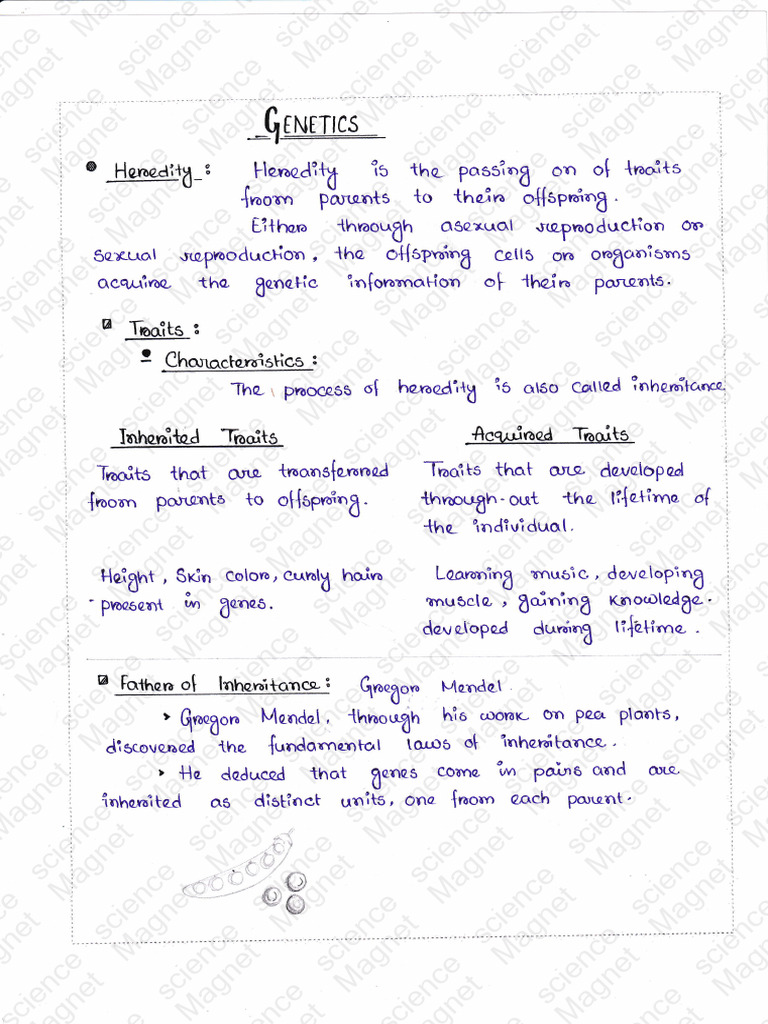 GENETICS
Heredity : Heredity is the passing on of traits
from parents to their offspring.
Either through asexual reproduction or
sexual reproduction, the offspring cells or organisms
acquire the genetic information of their parents.
Traits :
Characteristics :
The process of heredity is also called inheritance
Inherited Traits
Traits that are transferred
from parents to offspring.
Height, Skin color, curly hair
- present in genes.
Acquired Traits
Traits that are developed
through-out the lifetime of
the individual.
Learning music, developing
muscle, gaining knowledge.
developed during lifetime.
Father of Inheritance : Gregor Mendel.
Gregor Mendel, through his work on pea plants,
discovered the fundamental laws of inheritance.
He deduced that genes come in pairs and are
inherited as distinct units, one from each parent.
science Magnet